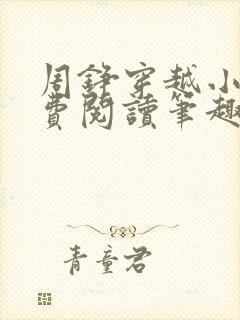 周錚穿越小
費閱讀筆趣
青童君